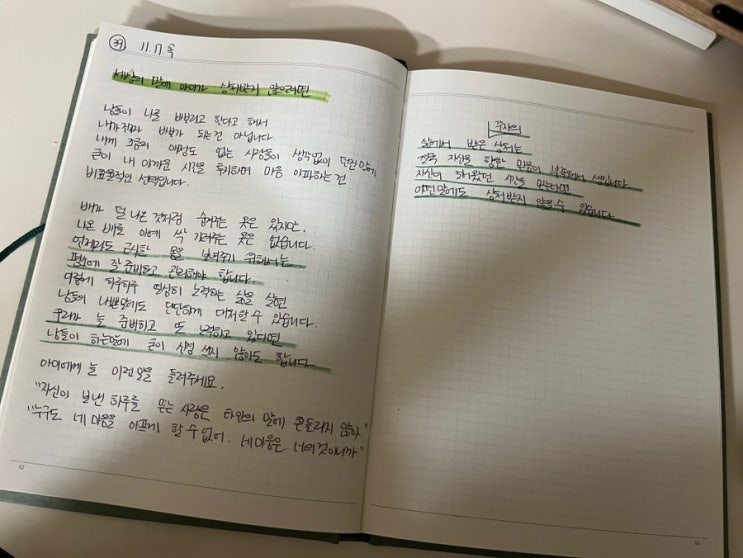 39 11.17 목
세상의 말에 아이가 상처받지 않으려면
남들이 나를 바보라고 한다고 해서
내가 진짜 바보가 되는 건 아닙니다.
내게 조금의 애정도 없는 사람들이 생각없이 던진 말에
굳이 내 아까운 시간을 투자하며 마음 아파하는 건
비효율적인 선택입니다.
배가 덜 나온 것처럼 숨겨주는 옷은 있지만,
나온 배를 아예 싹 가려주는 옷은 없습니다.
언제라도 근사한 몸을 보여주기 위해서는
평소에 잘 준비하고 관리해야 합니다.
이렇게 하루하루 열심히 노력하는 삶을 살면
남들의 나쁜말에도 단단하게 대처할 수 있습니다.
우리가 늘 준비하고 또 노력하고 있다면
남들이 하는말에 굳이 시점 쓰지 않아도 합니다.
아이에게 늘 이런 말을 들려주세요.
"자신이 보낸 하루를 믿는 사람은 타인의 말에 흔들리지 않아"
"누구도 네 마음을 아프게 할 수 없어. 네 마음은 너의 것이니까"
62
각자의
삶에서 받은 상처는
결국 자신을 향한 믿음이 부족해서 생깁니다.
자신이 보냈던 시간을 믿는다면
어떤 말에도 상처받지 않을 수 있습니다.